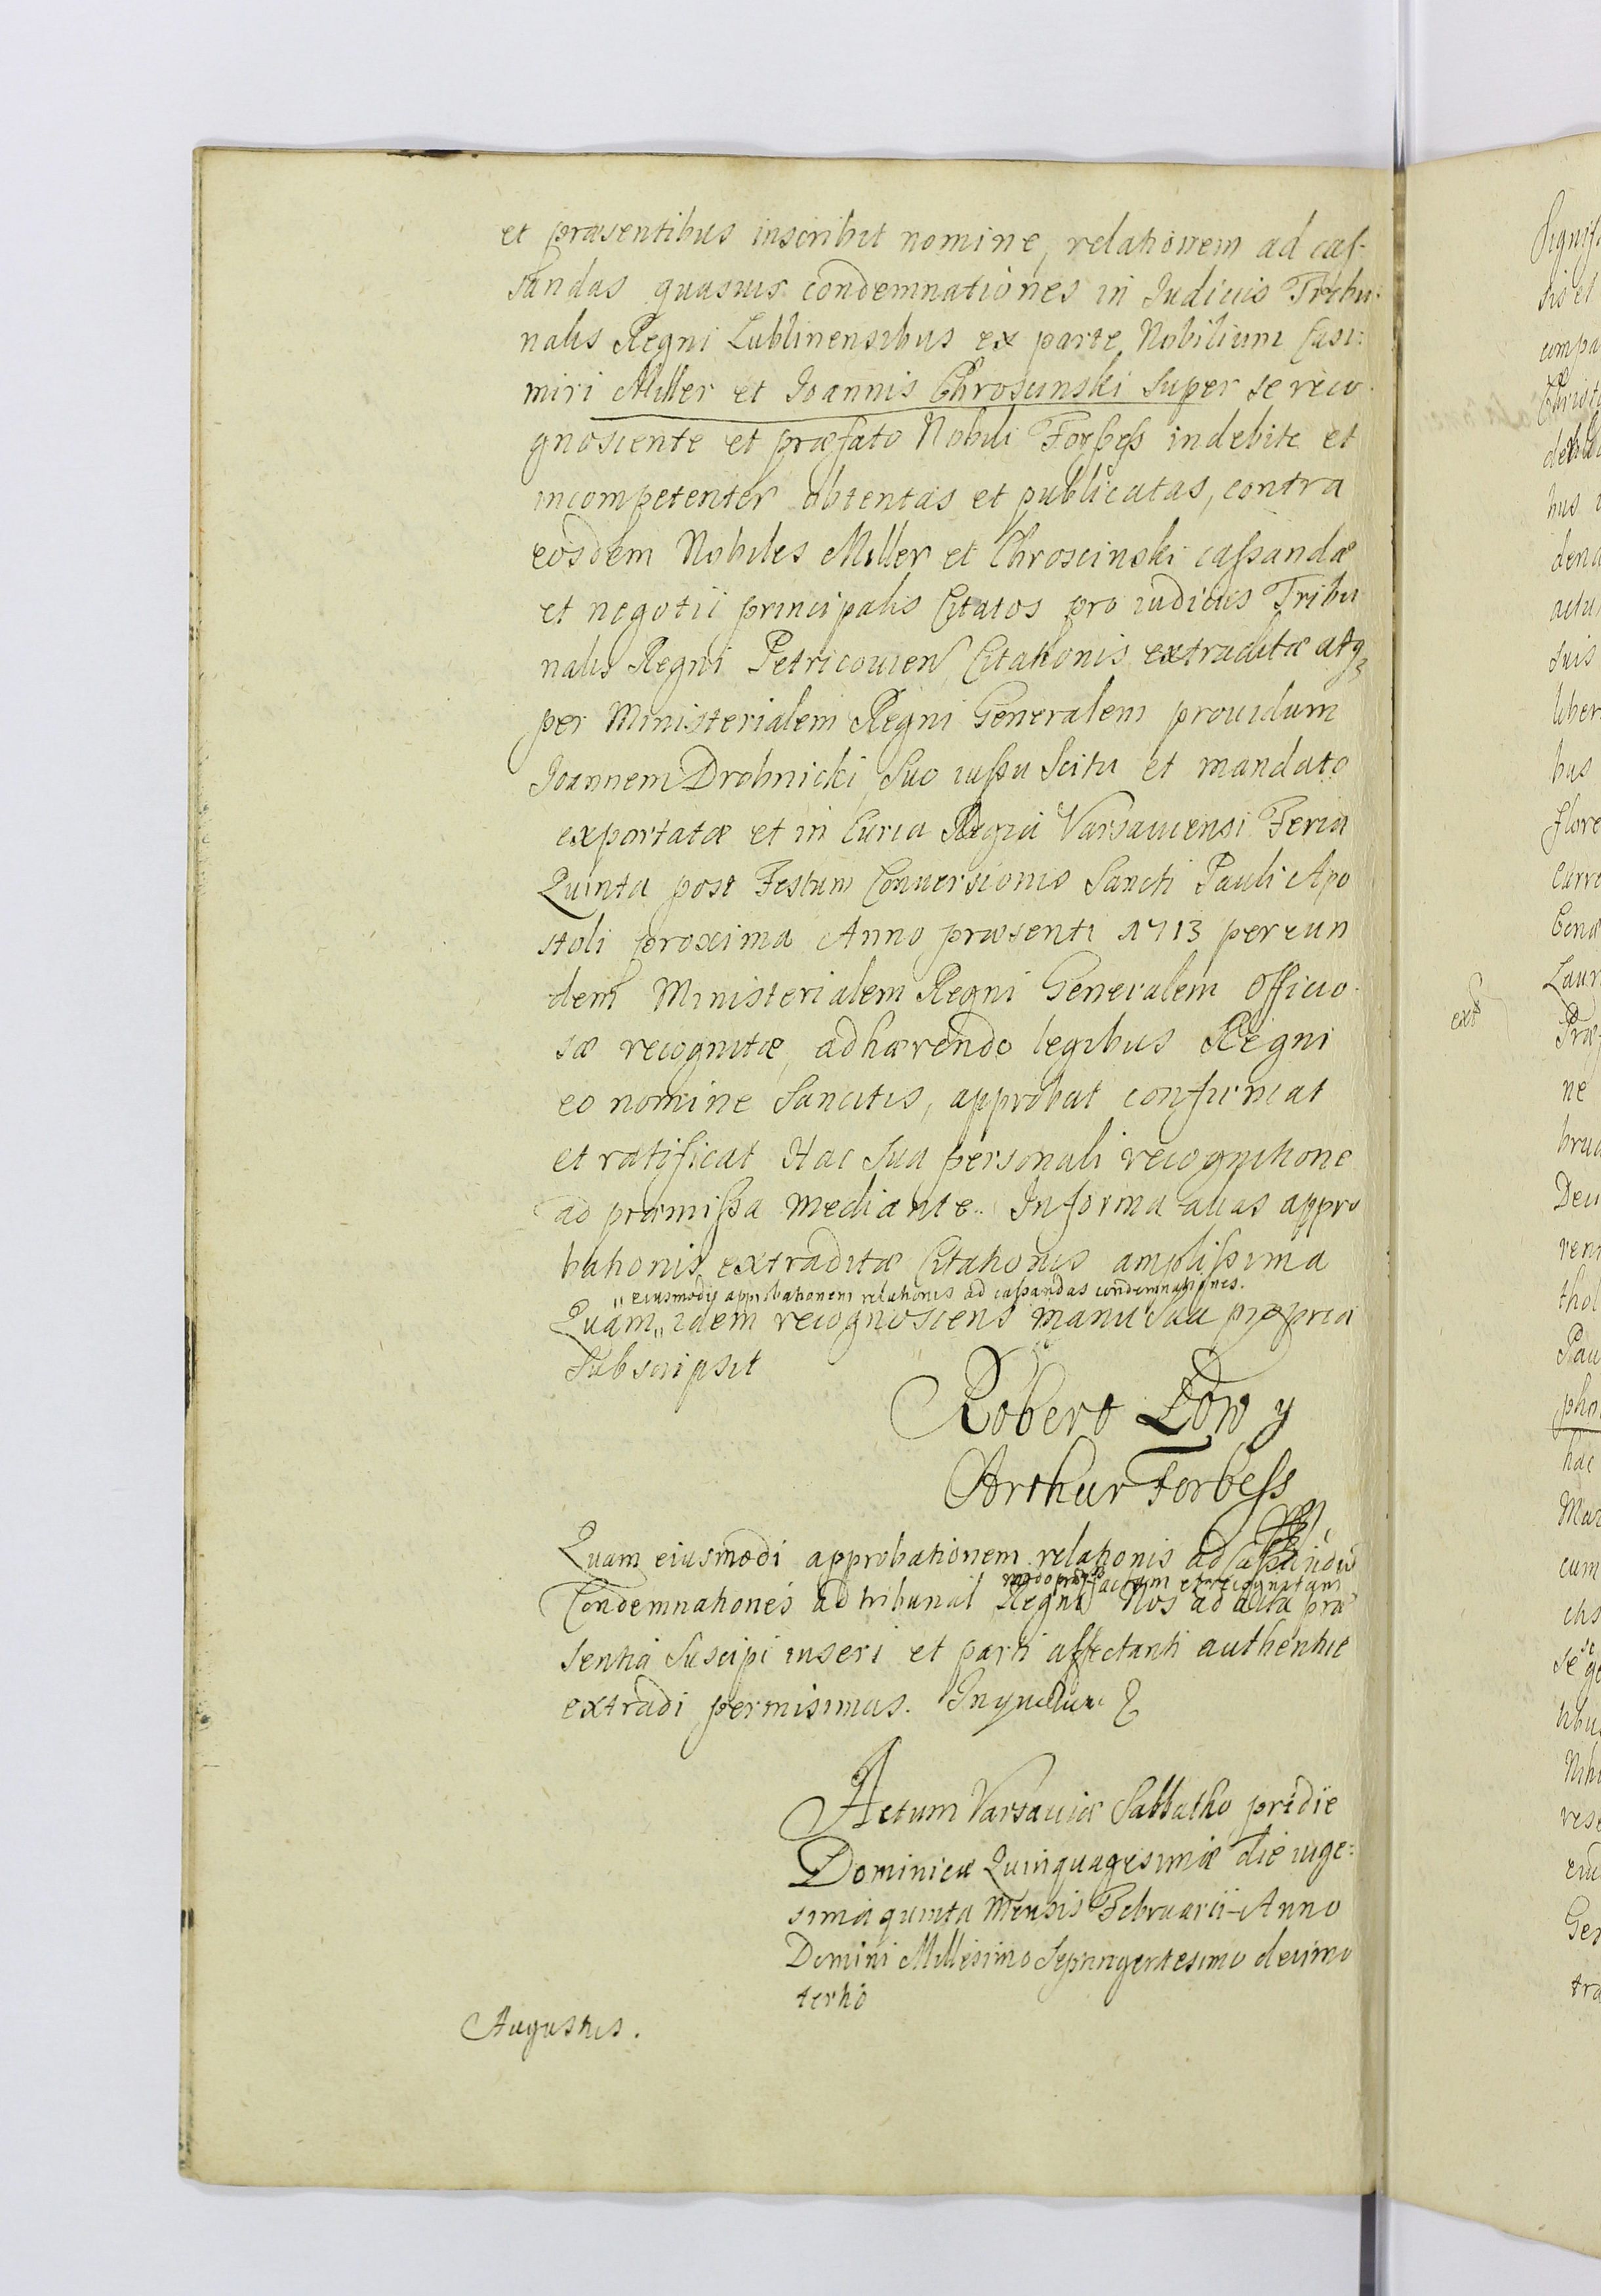 et præsentibus inscribit nomine, relationem ad cas-
sandas quasuis condemnationes in Iudicijs Tribu:
nalis Regni Lublinensibus ex parte Nobilium Casi:
miri Miller et Ioannis Chroscinski super se reco
gnoscente et præfato Nobili Forbess indebite et
incompetenter obtentas et publicatas, contra
eosdem Nobiles Miller et Chroscinski cassandæ
et negotii principalis Citatos pro iudicijs Tribu
nalis Regni Petricouien Citationis extraditæ atq3
per Ministerialem Regni Generalem prouidum
Joannem Drobnicki, Suo iussu Scitu et mandato
exportatæ et in Curia Regia Varsauiensi Feria
Quinta post Festum Conuersionis Sancti Pauli Apo
stoli proxima Anno præsenti 1713 per eun
dem Ministerialem Regni Generalem Officio
sæ recognitæ, adhærendo legibus Regni
eo nomine Sancitis, approbat confirmat
et ratificat Hac Sua personali recognitione
ad præmissa mediante. In forma alias appro
bationis extraditæ Citationis amplissima
„ eiusmodj approbationem relationis ad cassandas condemnationes.
Quam „ idem recognoscens manu Sua propria
Subscripsit
Robert Low y
Arthur Forbess
Quam eiusmodi approbationem relationis ad cassandas
factam et recognitam
Condemnationes ad tribunal Regni Nos ad acta præ
sentia Suscipi inseri et parti affectanti authentice
extradi permisimus. In quorum
Actum Varsauiæ Sabbatho pridie
Dominicæ Quinquagesimæ die uige:
sima quinta Mensis Februarii Anno
Domini Millesimo Septingentesimo decimo
tertio
Augustus.
ext